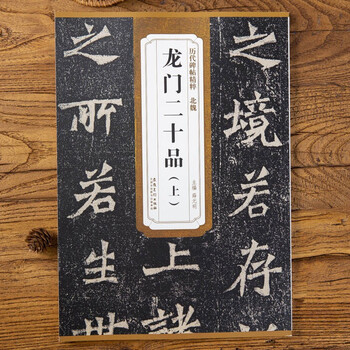 之境若存
历代碑帖精粹 北魏
龙门二十品（上）
主编
上諸
之所若生世